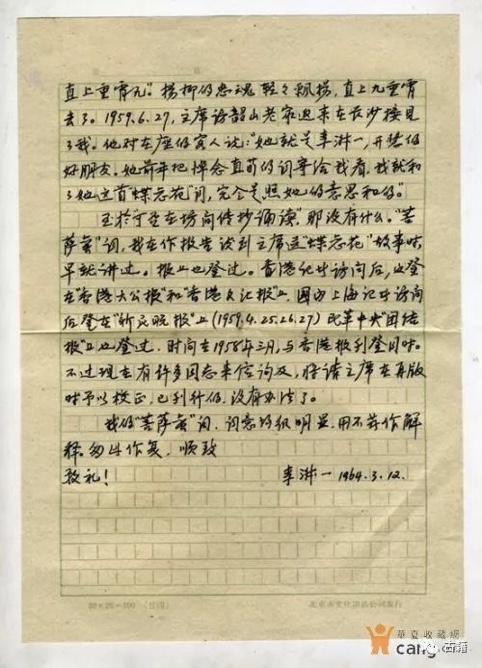 直上重霄九"。杨柳的忠魂轻轻飘扬,直上九重霄
去了。1959.6.27,主席访韶山老家迴来在长沙接见
了我。他对在座的客人说:"她就是李淑一,开慧的
好朋友。她前年把悼念直荀的词寄给我看,我就和
了她这首"蝶恋花"词,完全是照她的意思和的。"
至於字至在坊间传抄诵读,那没有什么。"菩
萨蛮"词,我在作报告谈到主席这"蝶恋花"故事时
早就讲过。报上也登过。香港记者访问后,也登
在"香港大公报"和"香港文汇报"上,国内上海记者访问
后登在"新民晚报"上(1959.4.25.26.27)民革中央"团结
报"上也登过,时间在1958年三月,与香港报刊登同时。
不过现在有许多同志来信询及,
时予以校正,已刊行的,没有办法了。
我的"菩萨蛮"词,词意均很明显,用不着作解
释。匆此作复,顺致
敬礼!
李淑一 1964.3.12.
20×20=400
北京市文化用品公司发行
華夏收藏網
cang
古籍